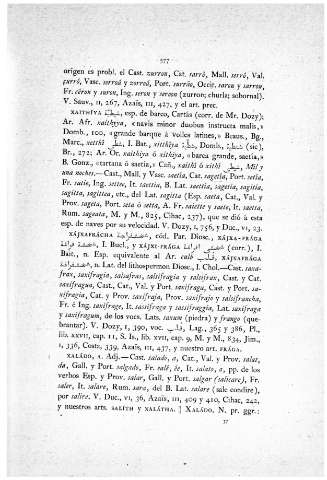 577
origen es probl. el Cast. zurron, Cat. sarró, Mall. serró, Val.
surró, Vasc. sorroá y zorroá, Port. surrão, Occit. saron y sarron,
Fr. céron y suron, Ing. seron y seroon (zurron; churla; sobornal).
V. Sauv., II, 267, Azaïs, III, 427, y el art. prec.
XAITHÍYA شيطية, esp. de barco, Cartás (corr. de Mr. Dozy);
Ar. Afr. xaithiya, «navis minor duobus instructa malis,»
Domb., 100, «grande barque à voiles latines,» Braus., Bg.,
Marc., xetthi شطي, I. Bat., شيطي, Domb., (sic),
Br., 272; Ar. Or. xaithiya ó xithiya, «barca grande, saetía,»
B. Gonz., «tartana ó saetía,» Cañ., xaithi ó xithi شيطي, Mil y
una noches.—Cast., Mall. y Vasc. saetia, Cat. sagetía, Port. setia,
Fr. satie, Ing. settee, It. saettia, B. Lat. saettia, sagetia, sagitia,
sagittia, sagittea, etc., del Lat. sagitta (Esp. saeta, Cat., Val. y
Prov. sageta, Port. seta ó setta, A. Fr. saiette y saete, It. saetta,
Rum. sageata, M. y M., 825, Cihac, 237), que se dió á esta
esp. de naves por su velocidad. V. Dozy, I, 756, y Duc., VI, 23.
XÁJXAFRÁCHA, cód. Par. Diosc., XÁJXA-FRÁGA
I. Bucl., y XÁJXE-FRÁGA (corr.), I.
Bait., n. Esp. equivalente al Ar. calb قلب, XÁJXAFRÁGA
n. Lat. del lithospermon Diosc., I. Chol.—Cast. saxa-
frax, saxifragia, salsafrax, salsifragia y salsifrax, Cast. y Cat.
saxifragua, Cast., Cat., Val. y Port. saxifraga, Cast. y Port. sa-
xifragia, Cat. y Prov. saxifraja, Prov. saxifrajo y salsifrancha,
Fr. é Ing. saxifrage, It. sassifraga y sassifraggia, Lat. saxifraga
y saxifragum, de los vocs. Lats. saxum (piedra) y frango (que-
brantar). V. Dozy, I, 390, voc. قلب, Lag., 365 y 386, Pl.,
lib. XXVII, cap. 11, S. Is., lib. XVII, cap. 9, M. y M., 834, Jim.,
I, 336, Costa, 339, Azaïs, III, 437, y nuestro art. FRÁGA.
XALÁDO, A. Adj.—Cast. salado, a, Cat., Val. y Prov. salat,
da, Gall. y Port. salgado, Fr. salé, ée, It. salato, a, pp. de los
verbos Esp. y Prov. salar, Gall. y Port. salgar (salicare), Fr.
saler, It. salare, Rum. sara, del B. Lat. salare (sale condire),
por salire. V. Duc., VI, 36, Azaïs, III, 409 y 410, Cihac, 242,
y nuestros arts. SALÍTH y XALÁTHA. ] XALÁDO, N. pr. ggr.:
37